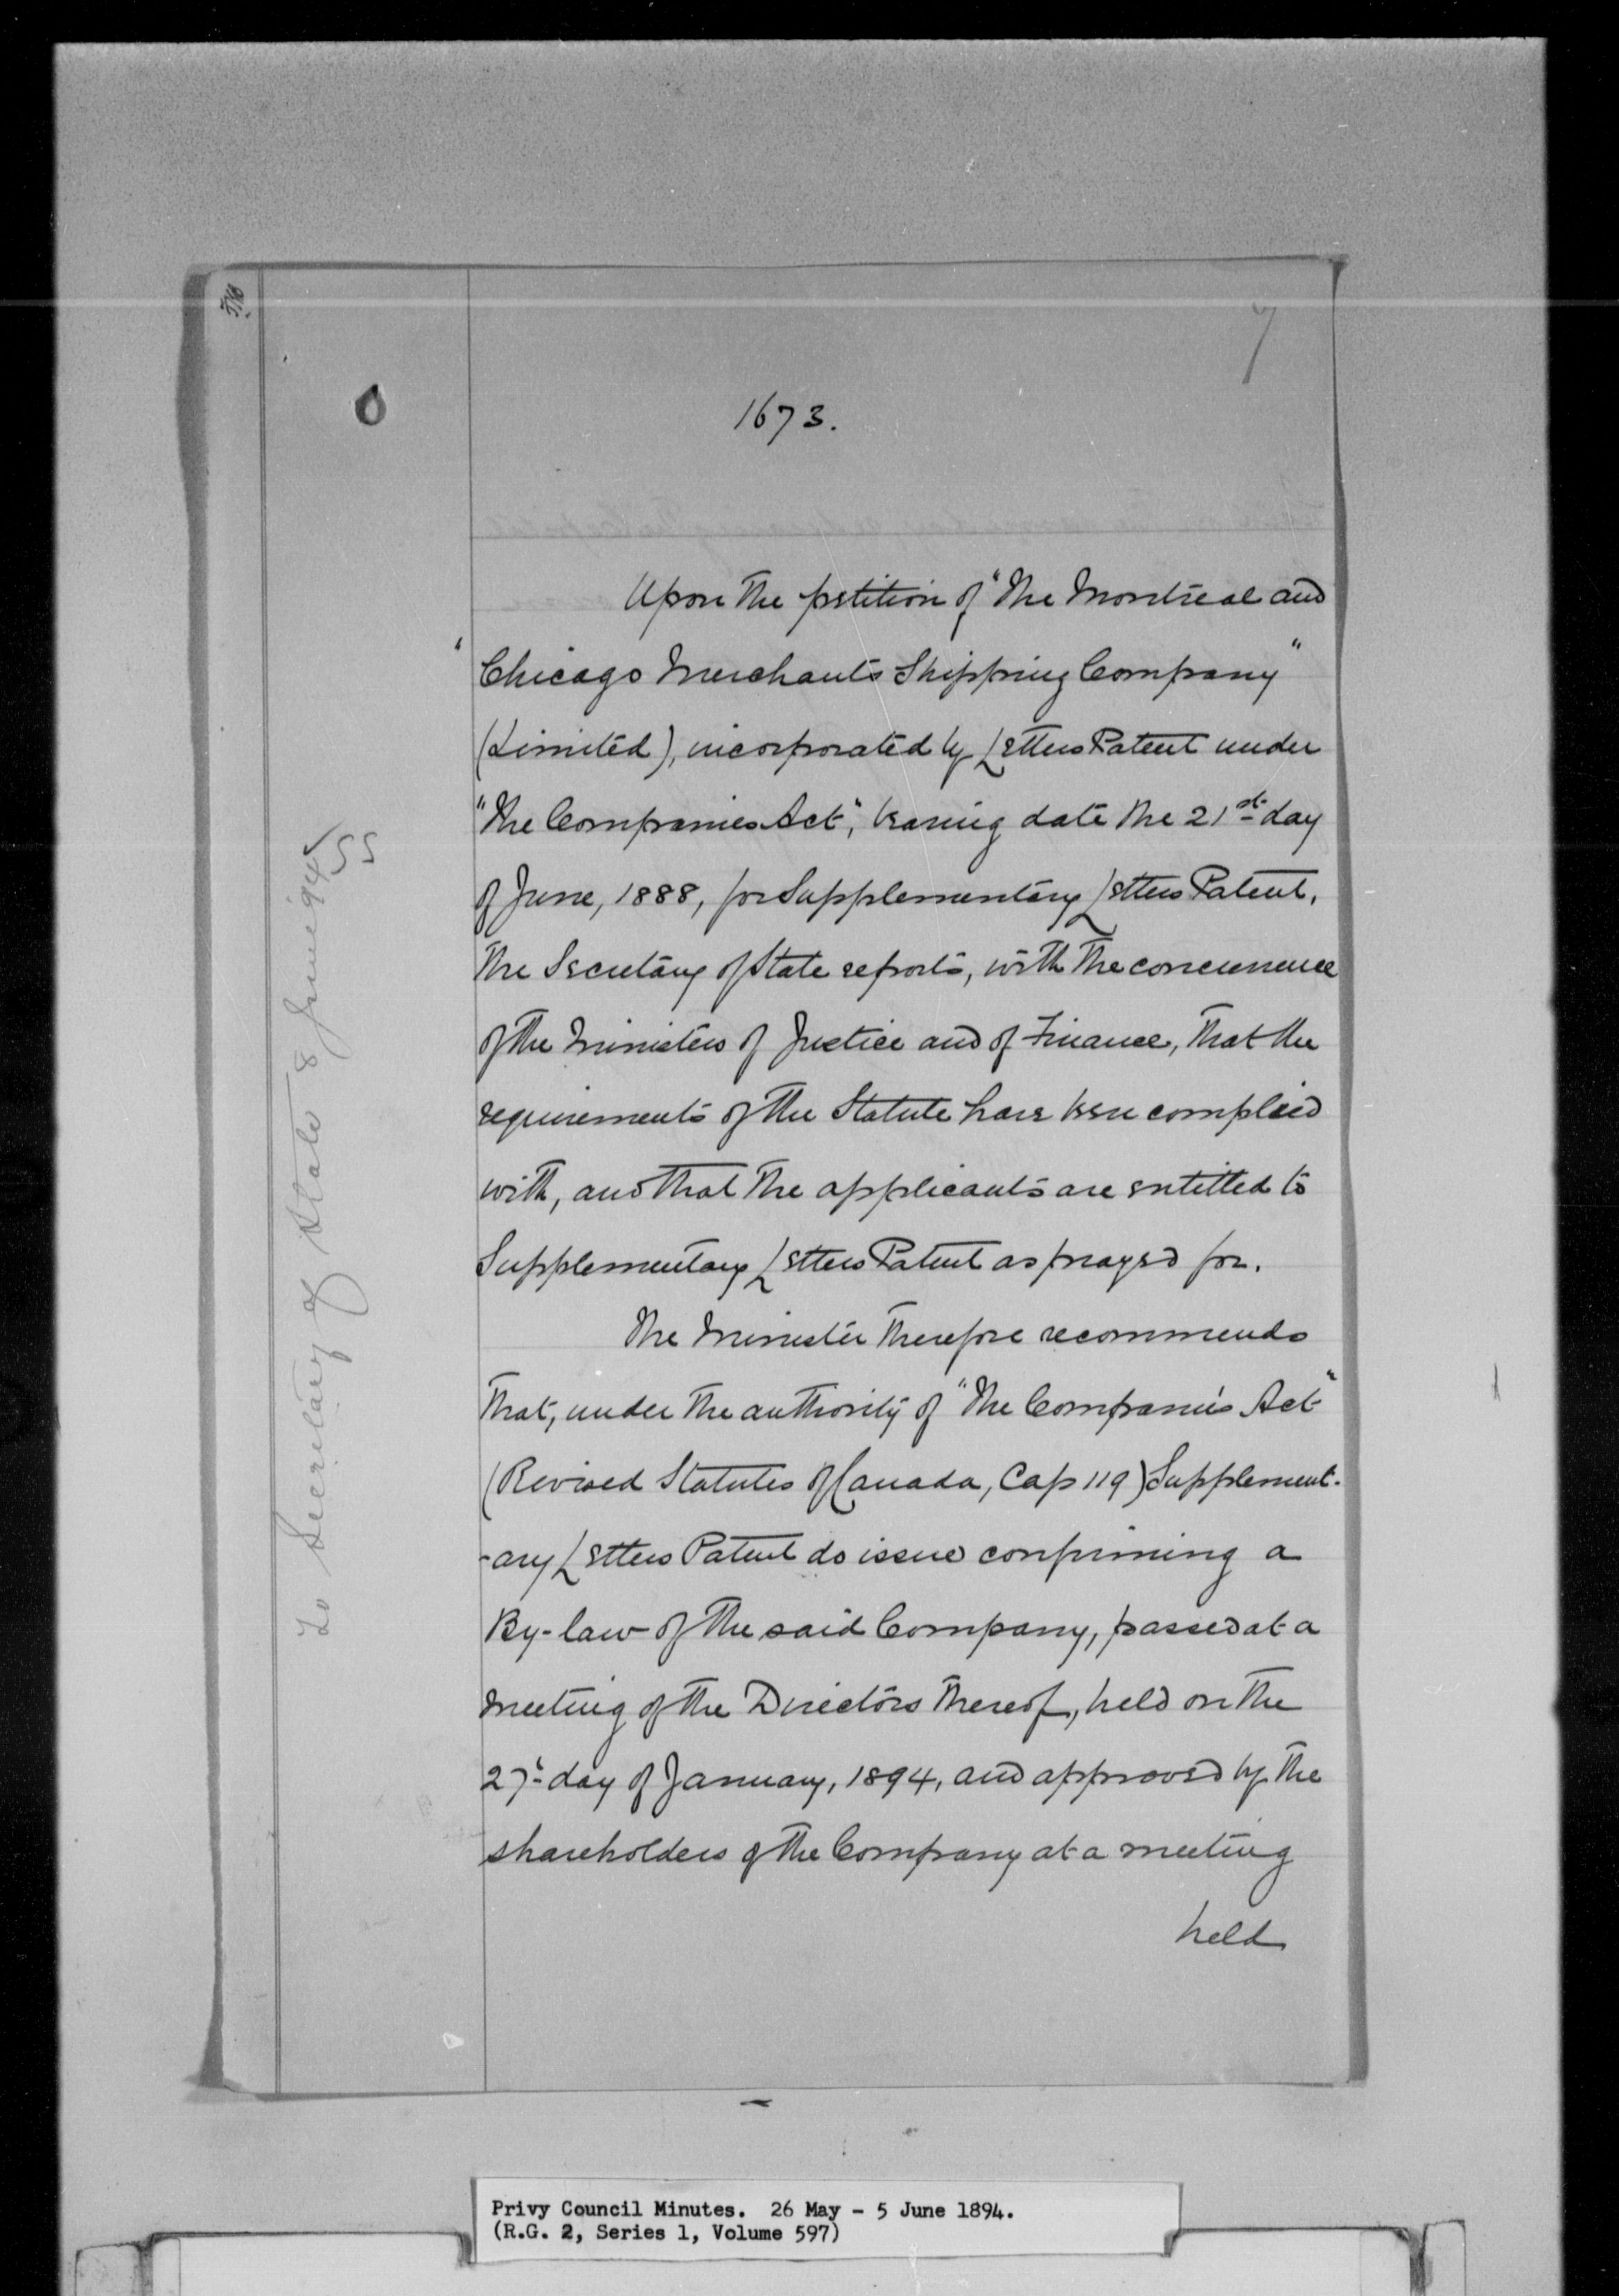 7
1673.
Upon the petition of "The Montreal and
"Chicago Merchants Shipping Company"
(Limited), incorporated by Letters Patent under
"The Companies Act", bearing date the 21st day
of June, 1888, for Supplementary Letters Patent,
The Secretary of State reports, with the concurrence
of the Ministers of Justice and of Finance, that the
requirements of the Statute have been complied
with, and that the applicants are entitled to
Supplementary Letters Patent as prayed for.
The Minister therefore recommends
that, under the authority of "The Companies Act"
(Revised Statutes of Canada, Cap 119) Supplement-
-ary Letters Patent do issue confirming a
By-law of the said Company, passed at a
meeting of the Directors thereof, held on the
27th day of January, 1894, and approved by the
shareholders of the Company at a meeting
held
To Secretary of State 8 June '94
Privy Council Minutes. 26 May - 5 June 1894.
(R.G. 2, Series 1, Volume 597)